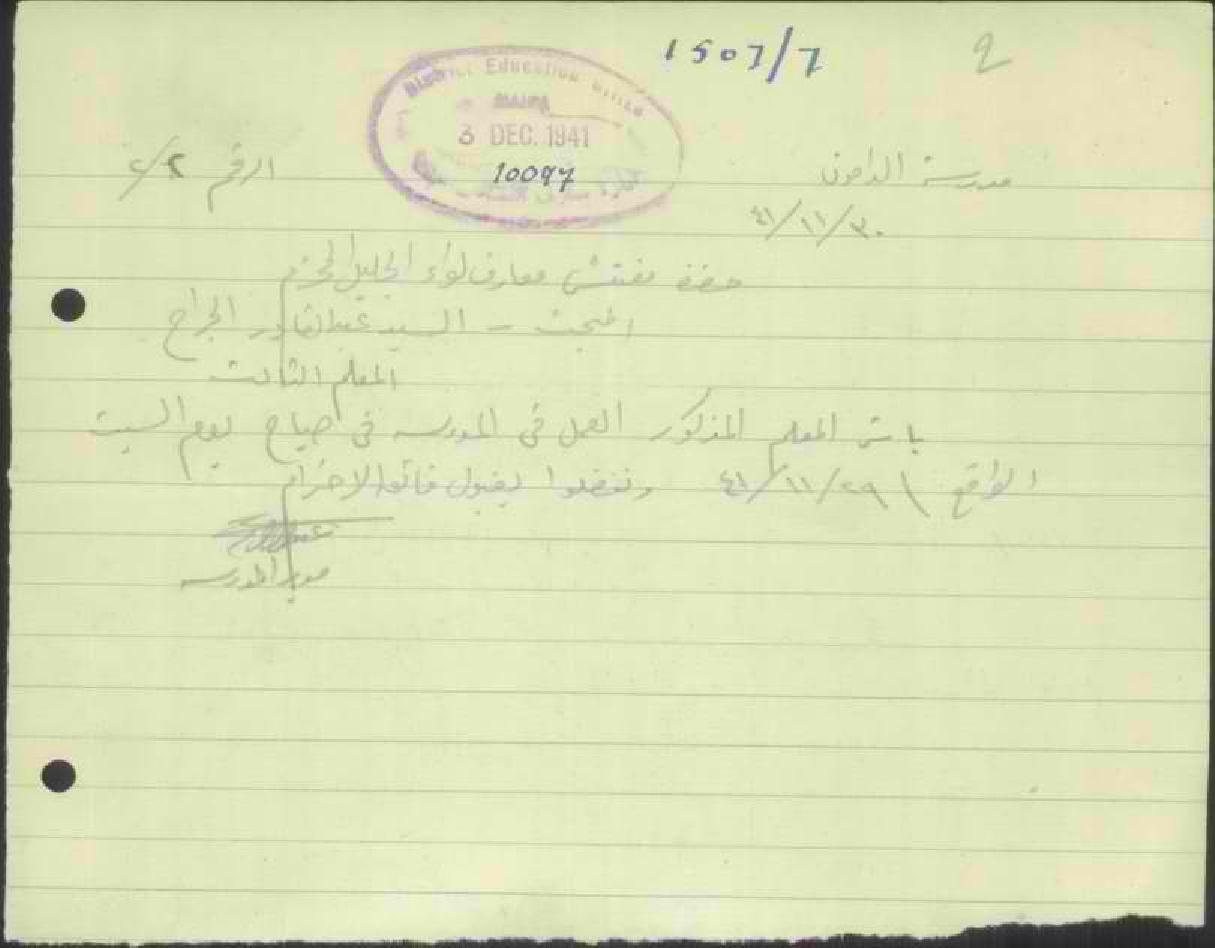 1507/7
9
District Education Office
HAIFA
3 DEC. 1941
10097
مدرسة الدامون
الرقم ٢/٢
٣٠/١١/٤١
حضرة مفتش معارف لواء الجليل المحترم
المبحث - السيد عبدالقادر الجراح
المعلم الثالث
باشر المعلم المذكور العمل في المدرسه في صباح يوم السبت
الواقع ٢٩/١١/٤١ وتفضلوا بقبول فائق الاحترام
مدير المدرسه